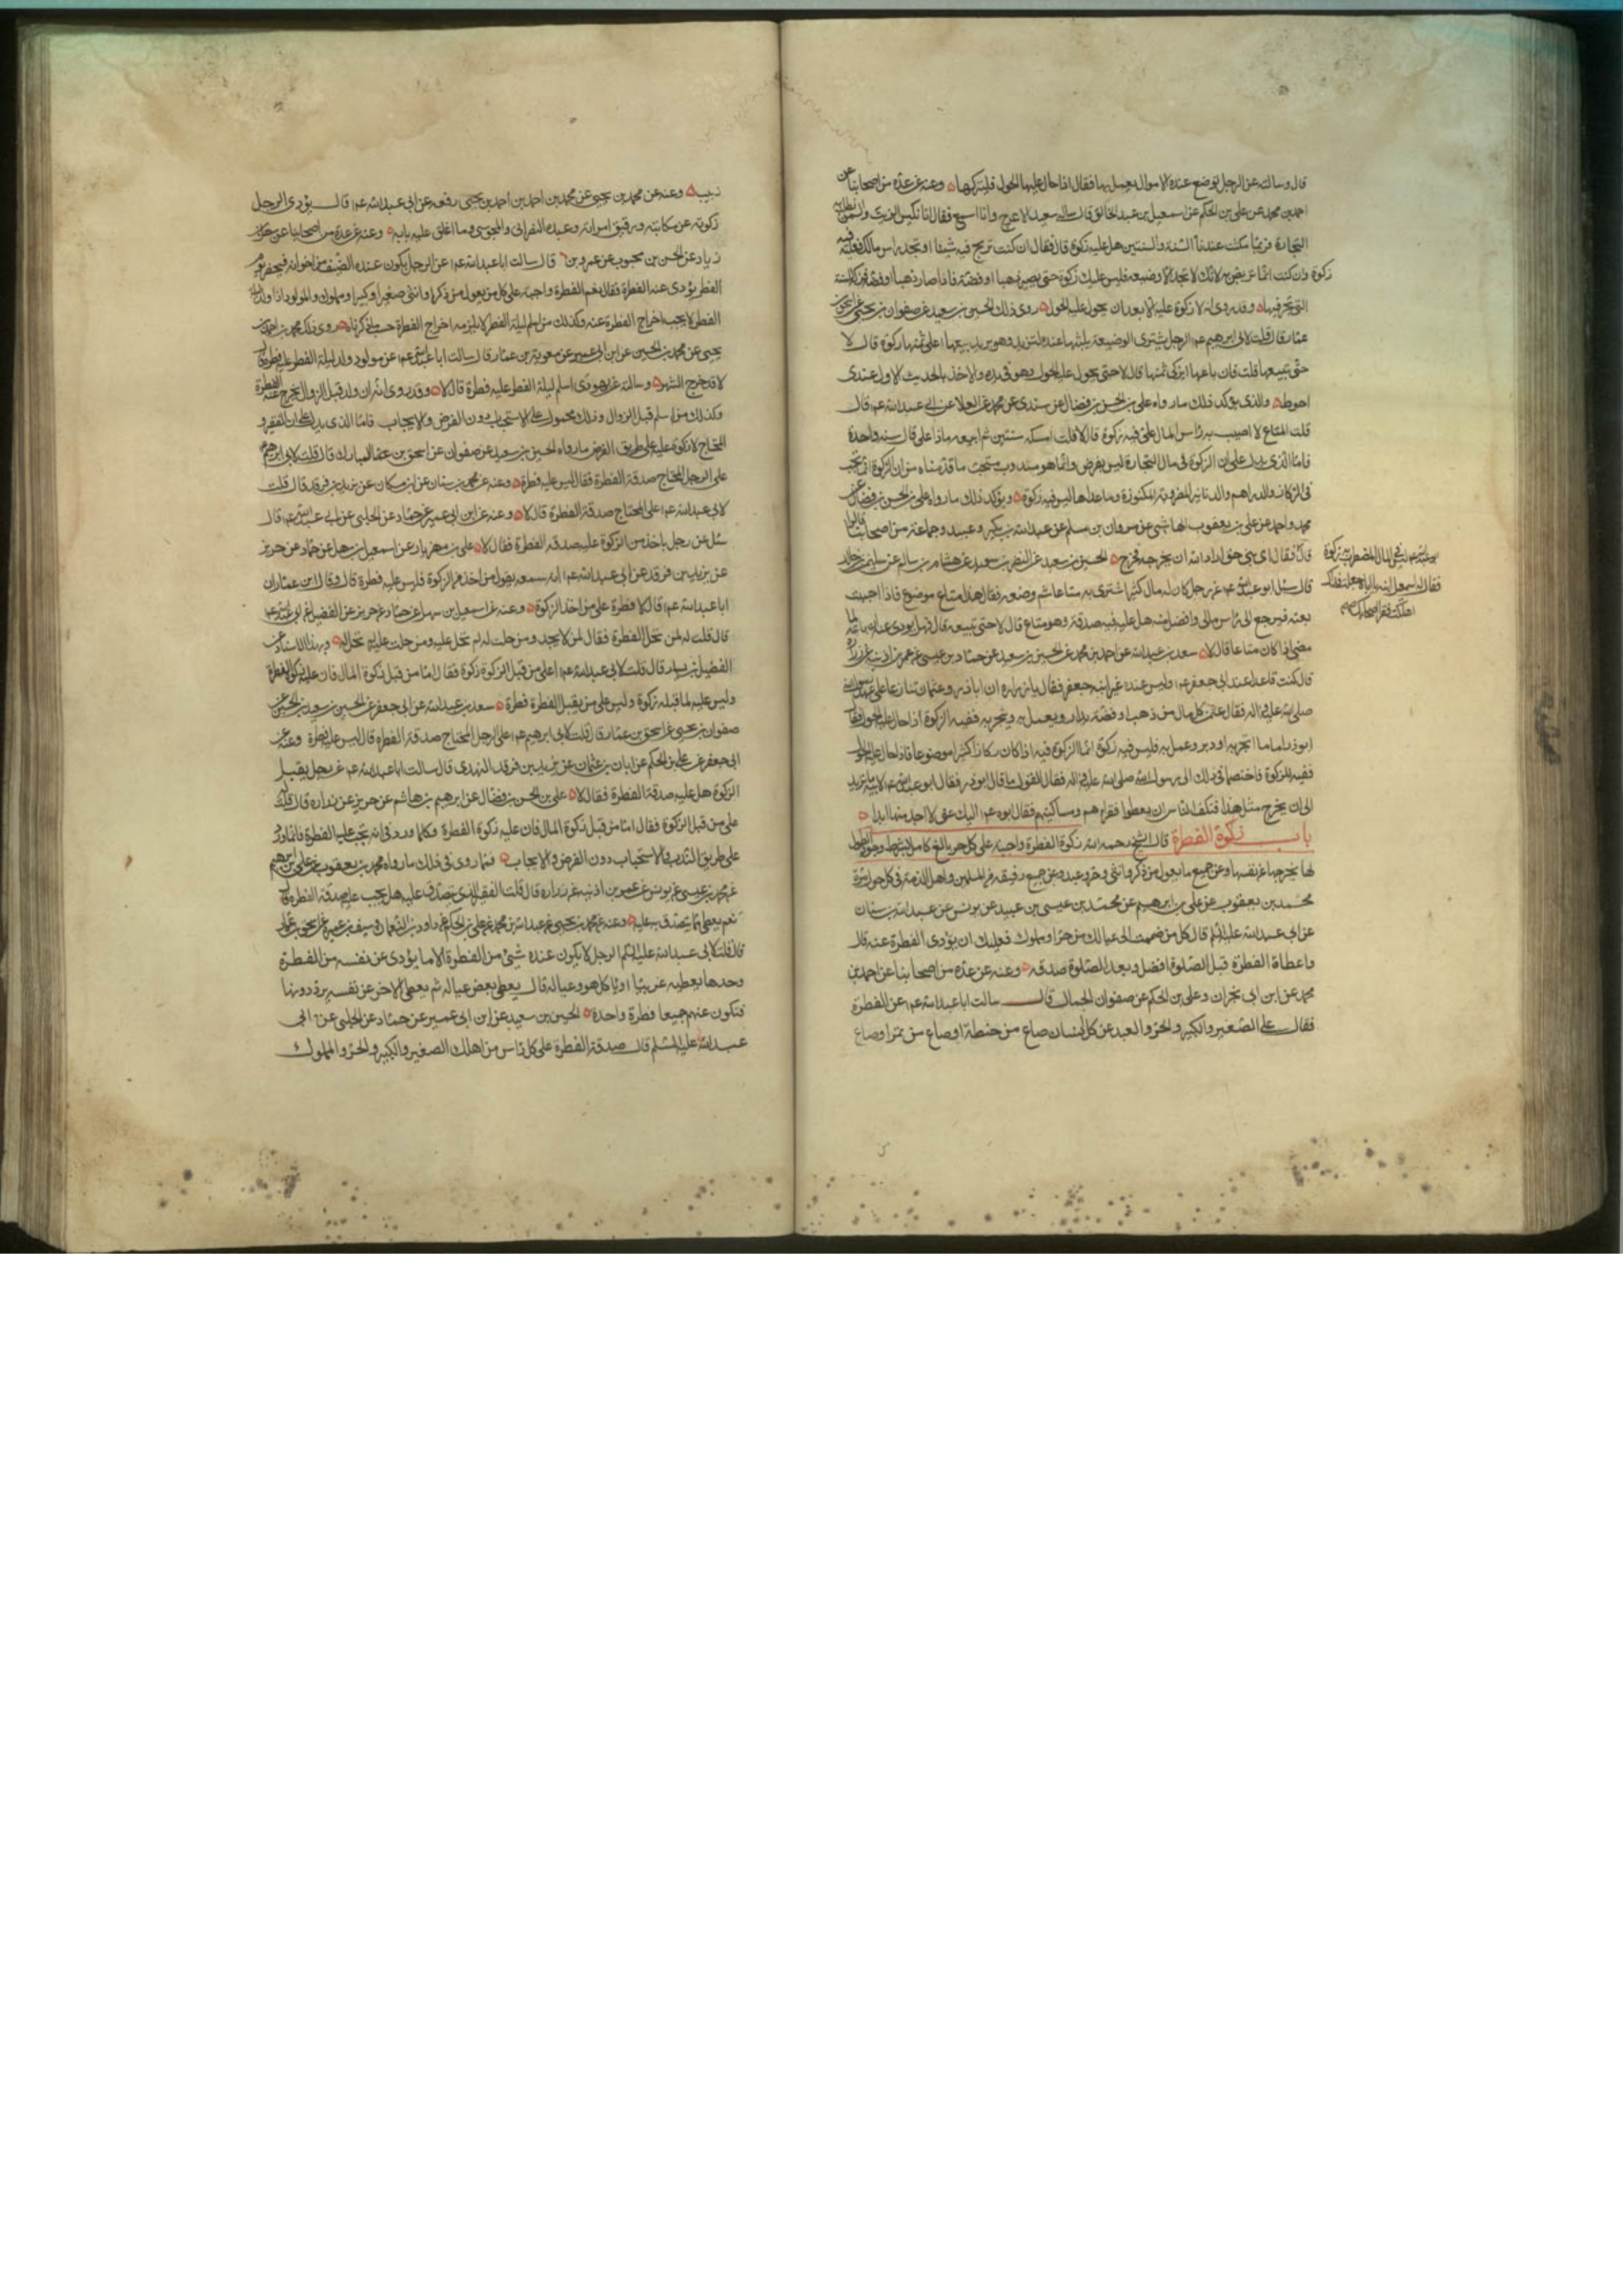 قال وسالته عن الرجل توضع عنده الاموال يعمل بها فقال اذا حال عليها الحول فليزكها وعنه عن عدة من اصحابنا عن
احمد بن محمد عن علي بن الحكم عن اسمعيل بن عبد الخالق قال ساله سعيد الاعرج وانا اسمع فقال انا نكبس الزيت والسمن نطلب به
التجارة فربما مكث عندنا السنة والسنتين هل عليه زكوة قال فقال ان كنت تربح فيه شيئا او تجد راس مالك فعليك فيه
زكوة وان كنت انما تربص به لانك لا تجد الا وضيعة فليس عليك زكوة حتى يصير ذهبا او فضة فاذا صار ذهبا او فضة فزكه للسنة
التي تتجر فيها وقد روى انه لا زكوة عليه الا بعد ان يحول عليه الحول روى ذلك الحسين بن سعيد عن صفوان بن يحيى عن اسحق بن
عمار قال قلت لابي ابرهيم عم الرجل يشترى الوصيفة يثبتها عنده لتزيد وهو يريد بيعها اعلى ثمنها زكوة قال لا
حتى يبيعها قلت فان باعها ايزكى ثمنها قال لا حتى يحول عليه الحول وهو في يده والاخذ بالحديث الاول عندى
احوط والذى يؤكد ذلك ما رواه على بن الحسن بن فضال عن سندى عن محمد عن العلا عن ابى عبد الله عم قال
قلت المتاع لا اصيب به راس المال على فيه زكوة قال لا قلت امسكه سنتين ثم ابيعه ماذا على قال سنة واحدة
فاما الذى يدل على ان الزكوة في مال التجارة ليس بفرض وانما هو مندوب مستحب ما قدمناه من ان الزكوة انما تجب
في الدنانير والدراهم المضروبة المنقوشة وما عداها ليس فيه زكوة ويؤكد ذلك ما رواه على بن الحسن بن فضال عن
محمد واحمد عن على بن يعقوب الهاشمى عن مروان بن مسلم عن عبد الله بن بكير وعبيد وجماعة من اصحابنا قالوا
قال فقال اى بنى حق اراد الله ان يخرجه فخرج الحسين بن سعيد عن النضر بن سويد عن هشام بن سالم عن سليمن بن خالد
قال سئل ابو عبد الله عم عن رجل كان له مال كثير اشترى به متاعا ثم وضعه فقال هذا متاع موضوع فاذا احببت
بعته فيرجع الى راس مالى وافضل منه هل عليه فيه صدقة وهو متاع قال لا حتى تبيعه قال فهل يودى عنه ان باعه لما
مضى اذا كان متاعا قال لا سعد بن عبد الله عن احمد بن محمد عن الحسين بن سعيد عن حماد بن عيسى عن عمر بن اذينة عن زرارة
قال كنت قاعدا عند ابى جعفر عم وليس عنده غير ابنه جعفر فقال يا زرارة ان اباذر وعثمان تنازعا على عهد رسول الله
صلى الله عليه واله فقال عثمن كل مال من ذهب او فضة يدار ويعمل به ويتجر به ففيه الزكوة اذا حال عليه الحول فقال
ابوذر اما ما اتجر به او دير وعمل به فليس فيه زكوة انما الزكوة فيه اذا كان ركازا كنزا موضوعا فاذا حال عليه الحول
ففيه الزكوة فاختصما في ذلك الى رسول الله صلى الله عليه واله فقال القول ما قال ابوذر فقال ابو عبد الله عم لابيه ما تريد
الى ان يخرج مثل هذا فتكف الناس ان يعطوا فقراءهم ومساكينهم فقال ابوه عم اليك عنى لا اجد منها بدا
باب زكوة الفطرة قال الشيخ رحمه الله زكوة الفطرة واجبة على كل حر بالغ كامل بشرط وجود الطول
لها يخرجها عن نفسه وعن جميع ما يعول من ذكر وانثى وحر وعبد وعن جميع رقيقه من المسلمين واهل الذمة في كل حول مرة
محمد بن يعقوب عن على بن ابرهيم عن محمد بن عيسى بن عبيد عن يونس عن عبد الله بن سنان
عن ابى عبد الله عليه السلم قال كل من ضممت الى عيالك من حر او مملوك فعليك ان يؤدى الفطرة عنه قال
واعطاء الفطرة قبل الصلوة افضل وبعد الصلوة صدقة وعنه عن عدة من اصحابنا عن احمد بن
محمد عن ابن ابى نجران وعلى بن الحكم عن صفوان الجمال قال سالت ابا عبد الله عم عن الفطرة
فقال على الصغير والكبير والحر والعبد عن كل انسان صاع من حنطة او صاع من تمر او صاع
ابو عبد الله عم ليس في المال المضطرب به زكوة
فقال له اسمعيل ابنه يا اباه جعلت فداك
اهلكت فقراء اصحابك
زبيب وعنه عن محمد بن يحيى عن محمد بن احمد بن احمد بن يحيى رفعه عن ابى عبد الله عم قال يؤدى الرجل
زكوته عن مكاتبه ورقيق امراته وعبده النصرانى والمجوسى وما اغلق عليه بابه وعنه عن عدة من اصحابنا عن سهل بن
زياد عن الحسن بن محبوب عن عمر بن قال سالت ابا عبد الله عم عن الرجل يكون عنده الضيف من اخوانه فيحضر يوم
الفطر يؤدى عنه الفطرة فقال نعم الفطرة واجبة على كل من يعول من ذكر او انثى صغير او كبير او مملوك والمولود اذا ولد ليلة
الفطر لا يجب اخراج الفطرة عنه وكذلك من اسلم ليلة الفطر لا يلزمه اخراج الفطرة حسب ما ذكرناه روى ذلك محمد بن احمد بن
يحيى عن محمد بن الحسين عن ابن ابى عمير عن معوية بن عمار قال سالت ابا عبد الله عم عن مولود ولد ليلة الفطر عليه فطرة قال
لا قد خرج الشهر وسالته عن يهودى اسلم ليلة الفطر عليه فطرة قال لا وقد روى انه ان ولد قبل الزوال يخرج عنه الفطرة
وكذلك من اسلم قبل الزوال وذلك محمول على الاستحباب دون الفرض والايجاب فاما الذى يدل على ان الفقير و
المحتاج لا زكوة عليه على طريق الفرض ما رواه الحسين بن سعيد عن صفوان عن اسحق بن المبارك قال قلت لابى ابرهيم عم
على الرجل المحتاج صدقة الفطرة فقال ليس عليه فطرة وعنه عن محمد بن سنان عن ابن مسكان عن يزيد بن فرقد قال قلت
لابى عبد الله عم على المحتاج صدقة الفطرة قال لا وعنه عن ابن ابى عمير عن حماد عن الحلبى عن ابى عبد الله عم قال
سئل عن رجل ياخذ من الزكوة عليه صدقة الفطرة فقال لا على بن مهزيار عن اسمعيل بن سهل عن حماد عن حريز
عن يزيد بن فرقد عن ابى عبد الله عم انه سمعه يقول من اخذ من الزكوة فليس عليه فطرة قال وقال ابن عمار ان
ابا عبد الله عم قال لا فطرة على من اخذ الزكوة وعنه عن اسمعيل بن سهل عن حماد عن حريز عن الفضيل عن ابى عبد الله عم
قال قلت له لمن تحل الفطرة فقال لمن لا يجد ومن حلت له لم تحل عليه ومن حلت عليه لم تحل له وبهذا الاسناد عن
الفضيل بن يسار قال قلت لابى عبد الله عم اعلى من قبل الزكوة زكوة فقال اما من قبل زكوة المال فان عليه زكوة الفطرة
وليس عليه لما قبله زكوة وليس على من يقبل الفطرة فطرة سعد بن عبد الله عن ابى جعفر عن الحسين بن سعيد عن
صفوان بن يحيى عن اسحق بن عمار قال قلت لابى ابرهيم عم على الرجل المحتاج صدقة الفطرة قال ليس عليه فطرة وعنه عن
ابى جعفر عن على بن الحكم عن ابان بن عثمان عن يزيد بن فرقد النهدى قال سالت ابا عبد الله عم عن رجل يقبل
الزكوة هل عليه صدقة الفطرة فقال لا على بن الحسن بن فضال عن ابرهيم بن هاشم عن حريز عن زرارة قال قلت
على من قبل الزكوة فقال اما من قبل زكوة المال فان عليه زكوة الفطرة وكلما ورد في انه تجب عليه الفطرة فانما ورد
على طريق الندب والاستحباب دون الفرض والايجاب فما روى في ذلك ما رواه محمد بن يعقوب عن على بن ابرهيم
عن محمد بن عيسى عن يونس عن عمر بن اذينة عن زرارة قال قلت الفقير الذى يتصدق عليه هل يجب عليه صدقة الفطرة قال
نعم يعطى مما يتصدق به عليه وعنه عن محمد بن يحيى عن عبد الله بن محمد عن على بن الحكم عن داود بن النعمان وسيف بن عميرة عن اسحق بن عمار
قال قلت لابى عبد الله عليه السلم الرجل لا يكون عنده شئ من الفطرة الا ما يؤدى عن نفسه من الفطرة
وحدها يعطيه غريبا او ياكل هو وعياله قال يعطى بعض عياله ثم يعطى الاخر عن نفسه يرددونها
فتكون عنهم جميعا فطرة واحدة الحسين بن سعيد عن ابن ابى عمير عن حماد عن الحلبى عن ابى
عبد الله عليه السلم قال صدقة الفطرة على كل راس من اهلك الصغير والكبير والحر والمملوك